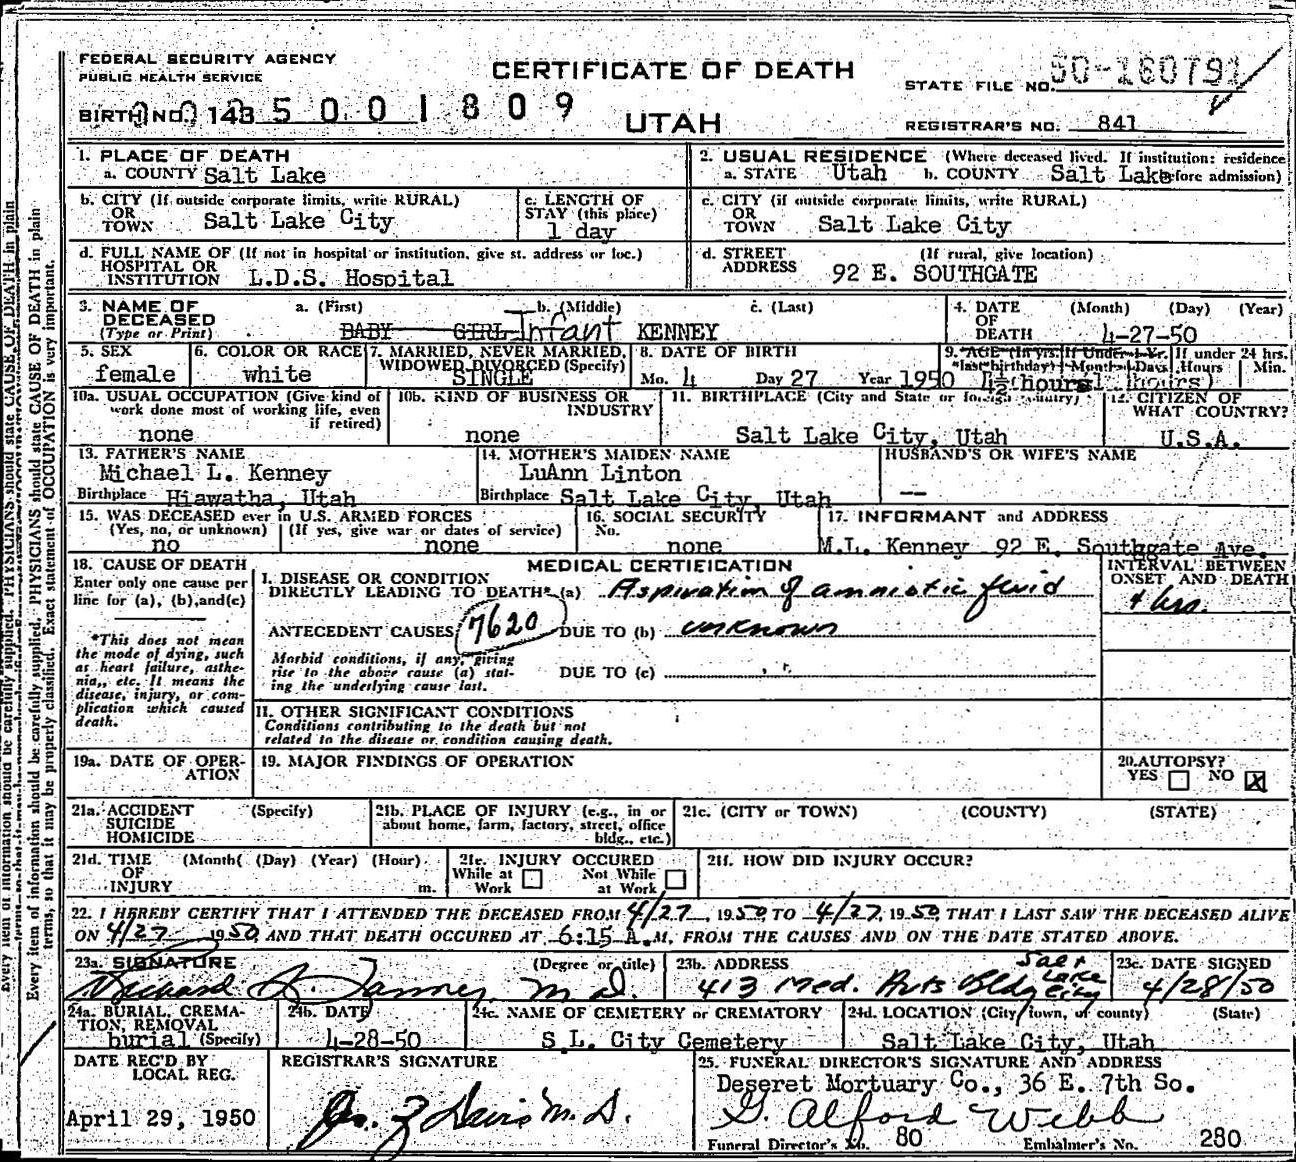 FEDERAL SECURITY AGENCY
PUBLIC HEALTH SERVICE
CERTIFICATE OF DEATH
UTAH
STATE FILE NO. 50-180791
BIRTH NO. 143 5 0 0 1 8 0 9
REGISTRAR'S NO. 841
1. PLACE OF DEATH
a. COUNTY Salt Lake
2. USUAL RESIDENCE (Where deceased lived. If institution: residence before admission)
a. STATE Utah b. COUNTY Salt Lake
b. CITY (If outside corporate limits, write RURAL)
OR
TOWN Salt Lake City
c. LENGTH OF
STAY (this place)
1 day
c. CITY (if outside corporate limits, write RURAL)
OR
TOWN Salt Lake City
d. FULL NAME OF (If not in hospital or institution, give st. address or loc.)
HOSPITAL OR
INSTITUTION L.D.S. Hospital
d. STREET (If rural, give location)
ADDRESS 92 E. SOUTHGATE
3. NAME OF
DECEASED
(Type or Print)
a. (First) b. (Middle) c. (Last)
BABY GIRL Infant KENNEY
4. DATE (Month) (Day) (Year)
OF
DEATH 4-27-50
5. SEX
female
6. COLOR OR RACE
white
7. MARRIED, NEVER MARRIED,
WIDOWED, DIVORCED (Specify)
SINGLE
8. DATE OF BIRTH
Mo. 4 Day 27 Year 1950
9. AGE (In yrs. If Under 1 Yr. If under 24 hrs.
last birthday) Months Days Hours Min.
4½ (hours) (hours)
10a. USUAL OCCUPATION (Give kind of
work done most of working life, even
if retired)
none
10b. KIND OF BUSINESS OR
INDUSTRY
none
11. BIRTHPLACE (City and State or foreign country)
Salt Lake City, Utah
12. CITIZEN OF
WHAT COUNTRY?
U.S.A.
13. FATHER'S NAME
Michael L. Kenney
Birthplace Hiawatha, Utah
14. MOTHER'S MAIDEN NAME
LuAnn Linton
Birthplace Salt Lake City, Utah
HUSBAND'S OR WIFE'S NAME
--
15. WAS DECEASED ever in U.S. ARMED FORCES
(Yes, no, or unknown) (If yes, give war or dates of service)
no none
16. SOCIAL SECURITY
No.
none
17. INFORMANT and ADDRESS
M.L. Kenney 92 E. Southgate Ave.
18. CAUSE OF DEATH
Enter only one cause per
line for (a), (b), and (c)
*This does not mean
the mode of dying, such
as heart failure, asthe-
nia, etc. It means the
disease, injury, or com-
plication which caused
death.
MEDICAL CERTIFICATION
I. DISEASE OR CONDITION
DIRECTLY LEADING TO DEATH* (a) Aspiration of amniotic fluid
ANTECEDENT CAUSES 7620 DUE TO (b) unknown
Morbid conditions, if any, giving
rise to the above cause (a) stat-
ing the underlying cause last.
DUE TO (c)
INTERVAL BETWEEN
ONSET AND DEATH
4 hrs.
II. OTHER SIGNIFICANT CONDITIONS
Conditions contributing to the death but not
related to the disease or condition causing death.
19a. DATE OF OPER-
ATION
19. MAJOR FINDINGS OF OPERATION
20. AUTOPSY?
YES NO X
21a. ACCIDENT (Specify)
SUICIDE
HOMICIDE
21b. PLACE OF INJURY (e.g., in or
about home, farm, factory, street, office
bldg., etc.)
21c. (CITY or TOWN) (COUNTY) (STATE)
21d. TIME (Month) (Day) (Year) (Hour)
OF
INJURY m.
21e. INJURY OCCURED
While at Not While
Work at Work
21f. HOW DID INJURY OCCUR?
22. I HEREBY CERTIFY THAT I ATTENDED THE DECEASED FROM 4/27, 1950, TO 4/27, 1950, THAT I LAST SAW THE DECEASED ALIVE
ON 4/27 1950, AND THAT DEATH OCCURED AT 6:15 A.M, FROM THE CAUSES AND ON THE DATE STATED ABOVE.
23a. SIGNATURE (Degree or title)
M.D.
23b. ADDRESS
413 Med. Arts Bldg Salt Lake City
23c. DATE SIGNED
4/28/50
24a. BURIAL, CREMA-
TION, REMOVAL
burial (Specify)
24b. DATE
4-28-50
24c. NAME OF CEMETERY or CREMATORY
S.L. City Cemetery
24d. LOCATION (City, town, or county) (State)
Salt Lake City, Utah
DATE REC'D BY
LOCAL REG.
April 29, 1950
REGISTRAR'S SIGNATURE
25. FUNERAL DIRECTOR'S SIGNATURE AND ADDRESS
Deseret Mortuary Co., 36 E. 7th So.
G. Alford Webb
Funeral Director's No. 80 Embalmer's No. 280
Every item of information should be carefully supplied. PHYSICIANS should state CAUSE OF DEATH in plain
terms, so that it may be properly classified. Exact statement of OCCUPATION is very important.